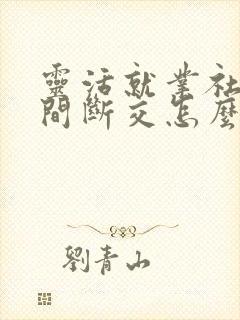 靈活就業社
間斷交怎麼
劉青山